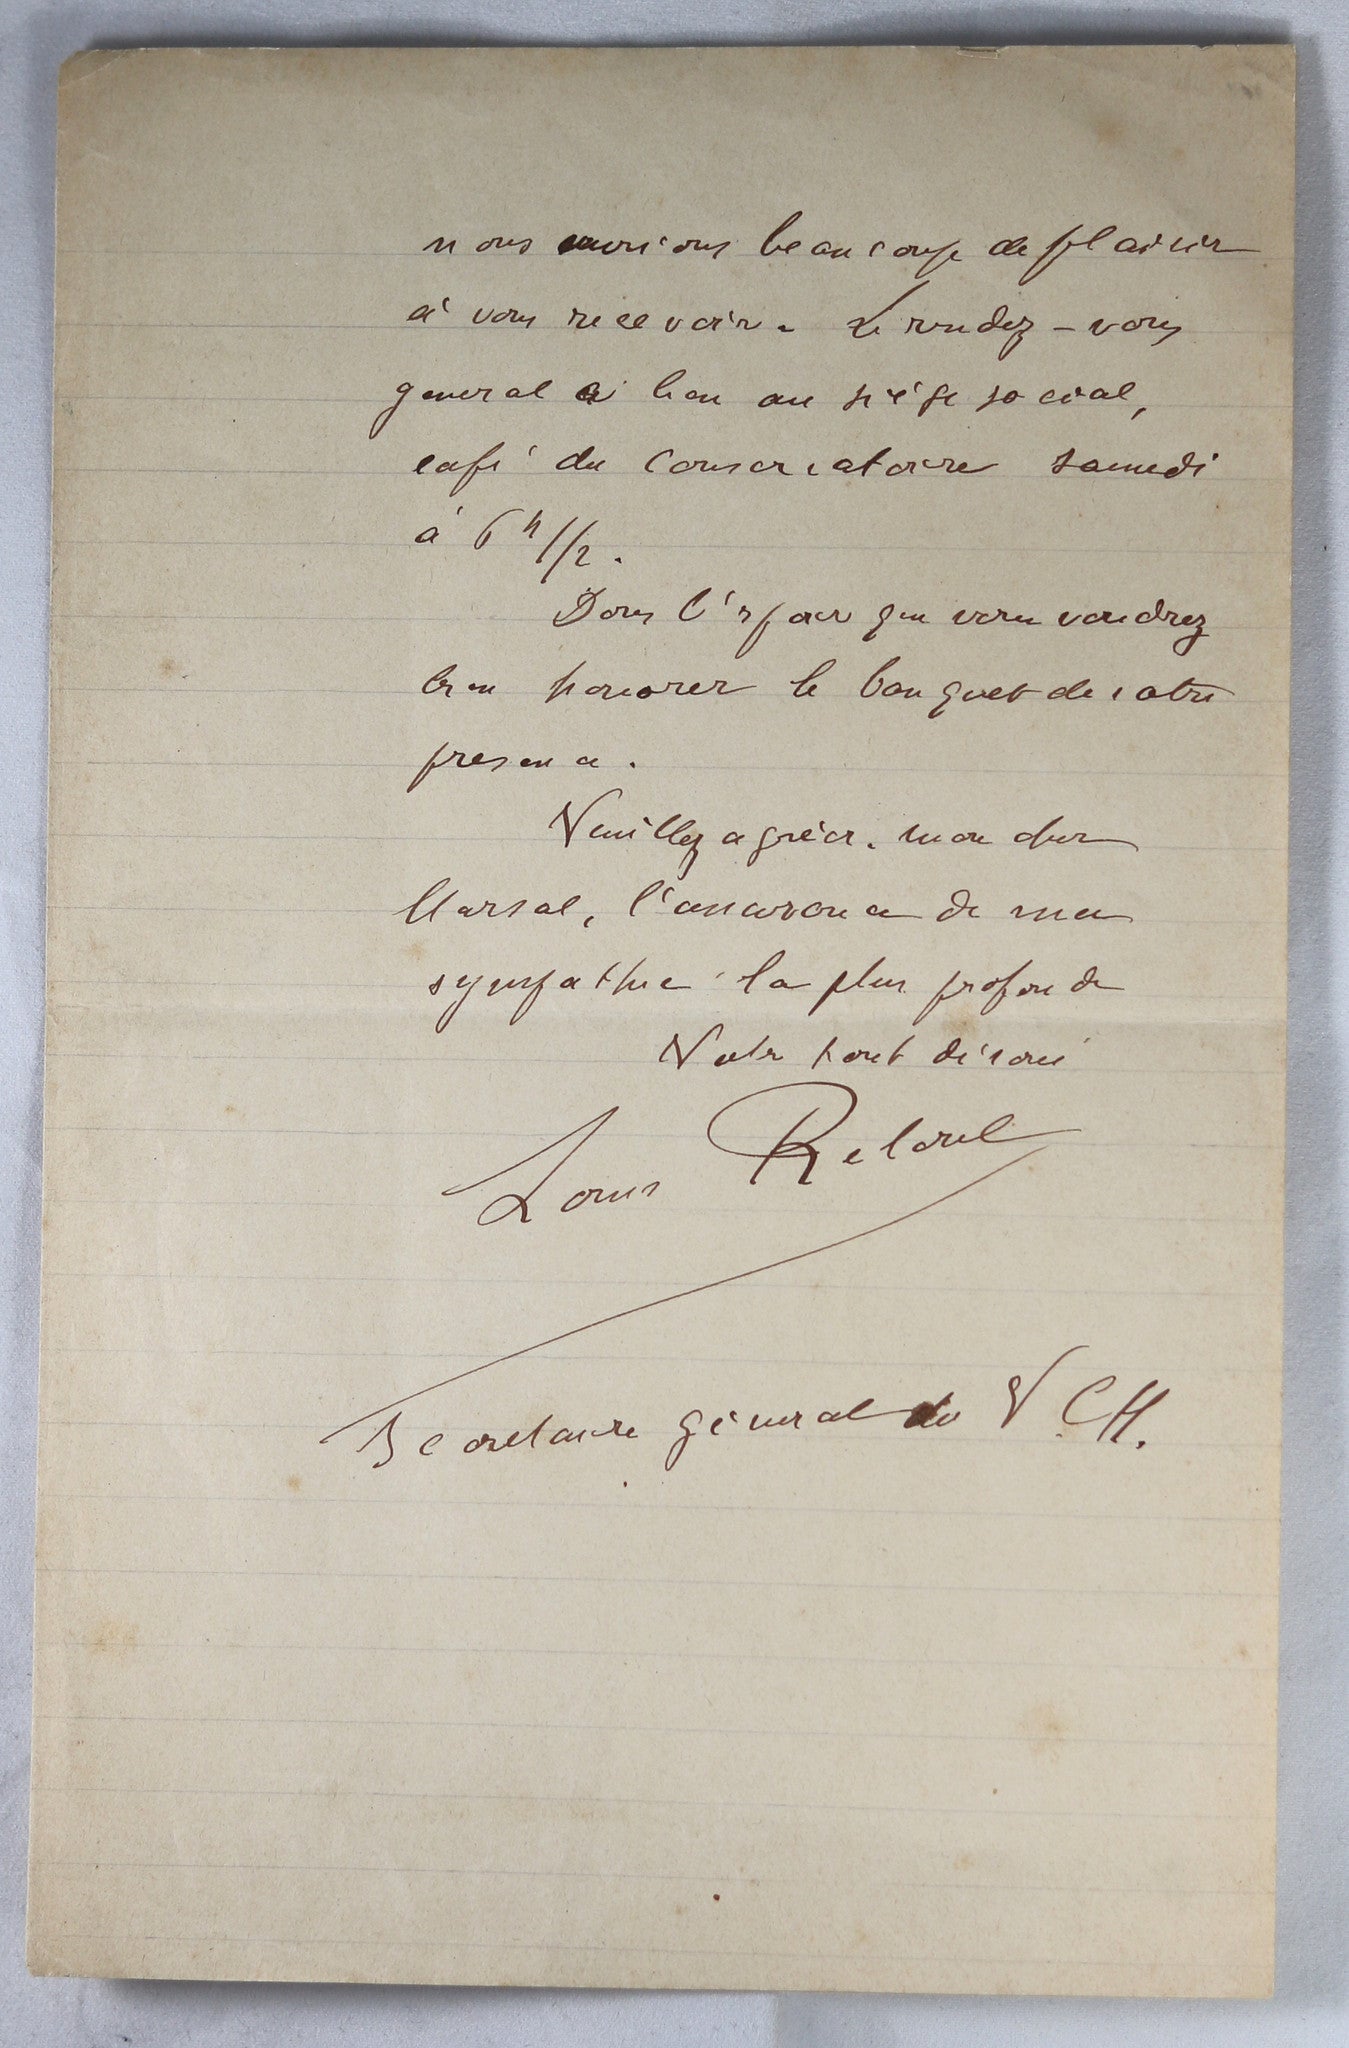 nous aurions beaucoup de plaisir
à vous recevoir. Le rendez-vous
general a lieu au siège social,
café du Conservatoire samedi
à 6 h 1/2.
Dans l'espoir que vous voudrez
bien honorer le banquet de votre
presence.
Veuillez agréer, mon cher
Marsal, l'assurance de ma
sympathie la plus profonde
Votre tout dévoué
Louis
Secretaire général du V.C.H.